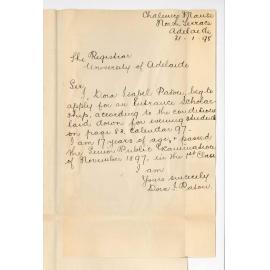 Chalmers Manse
North Terrace
Adelaide
21-1-98
The Registrar
University of Adelaide
Sir
I, Dora Isabel Paton, beg to
apply for an Entrance Scholar-
ship, according to the conditions
laid down for evening students
on page 82 Calendar 97.
I am 17 years of age, & passed
the Senior Public Examination
of November 1897, in the 1st Class
I am
Yours sincerely
Dora I. Paton.